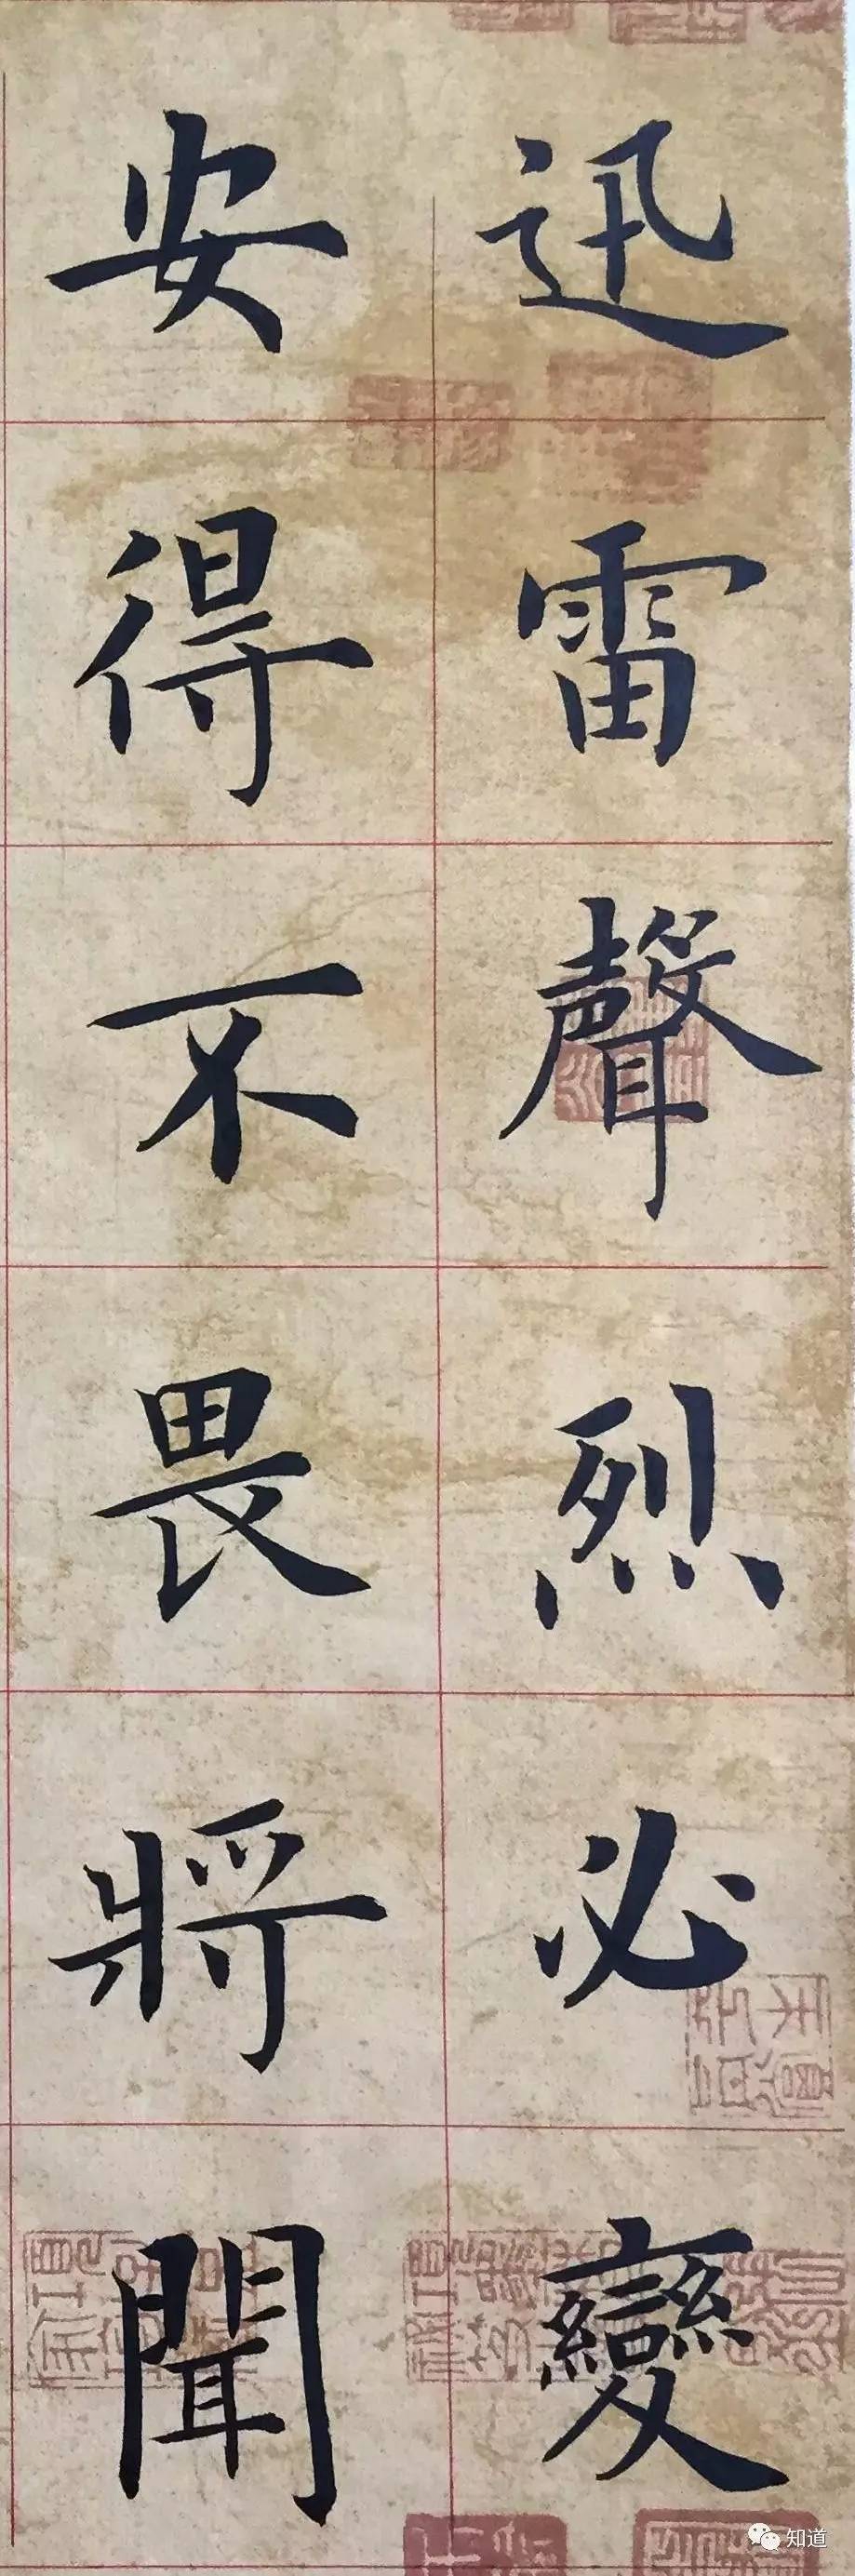 迅雷聲烈必變
安得不畏將聞
知道